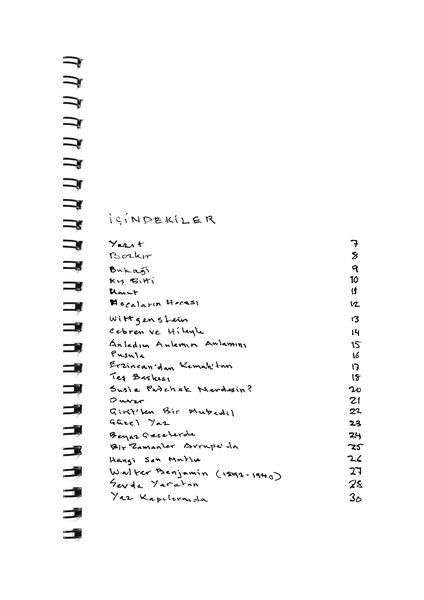 İÇİNDEKİLER
Yazıt 7
Bozkır 8
Bukağı 9
Kış Bitti 10
Umut 11
Hocaların Hocası 12
Wittgenstein 13
Cebren ve Hileyle 14
Anladım Anlamın Anlamını 15
Pusula 16
Erzincan'dan Kemah'tan 17
Taş Baskısı 18
Susie Patchak Nerdesin? 20
Duvar 21
Girit'ten Bir Mübadil 22
Güzel Yaz 23
Beyaz Gecelerde 24
Bir Zamanlar Avrupa'da 25
Hangi Son Mutlu 26
Walter Benjamin (1892-1940) 27
Sevda Yaratan 28
Yaz Kapılarında 30